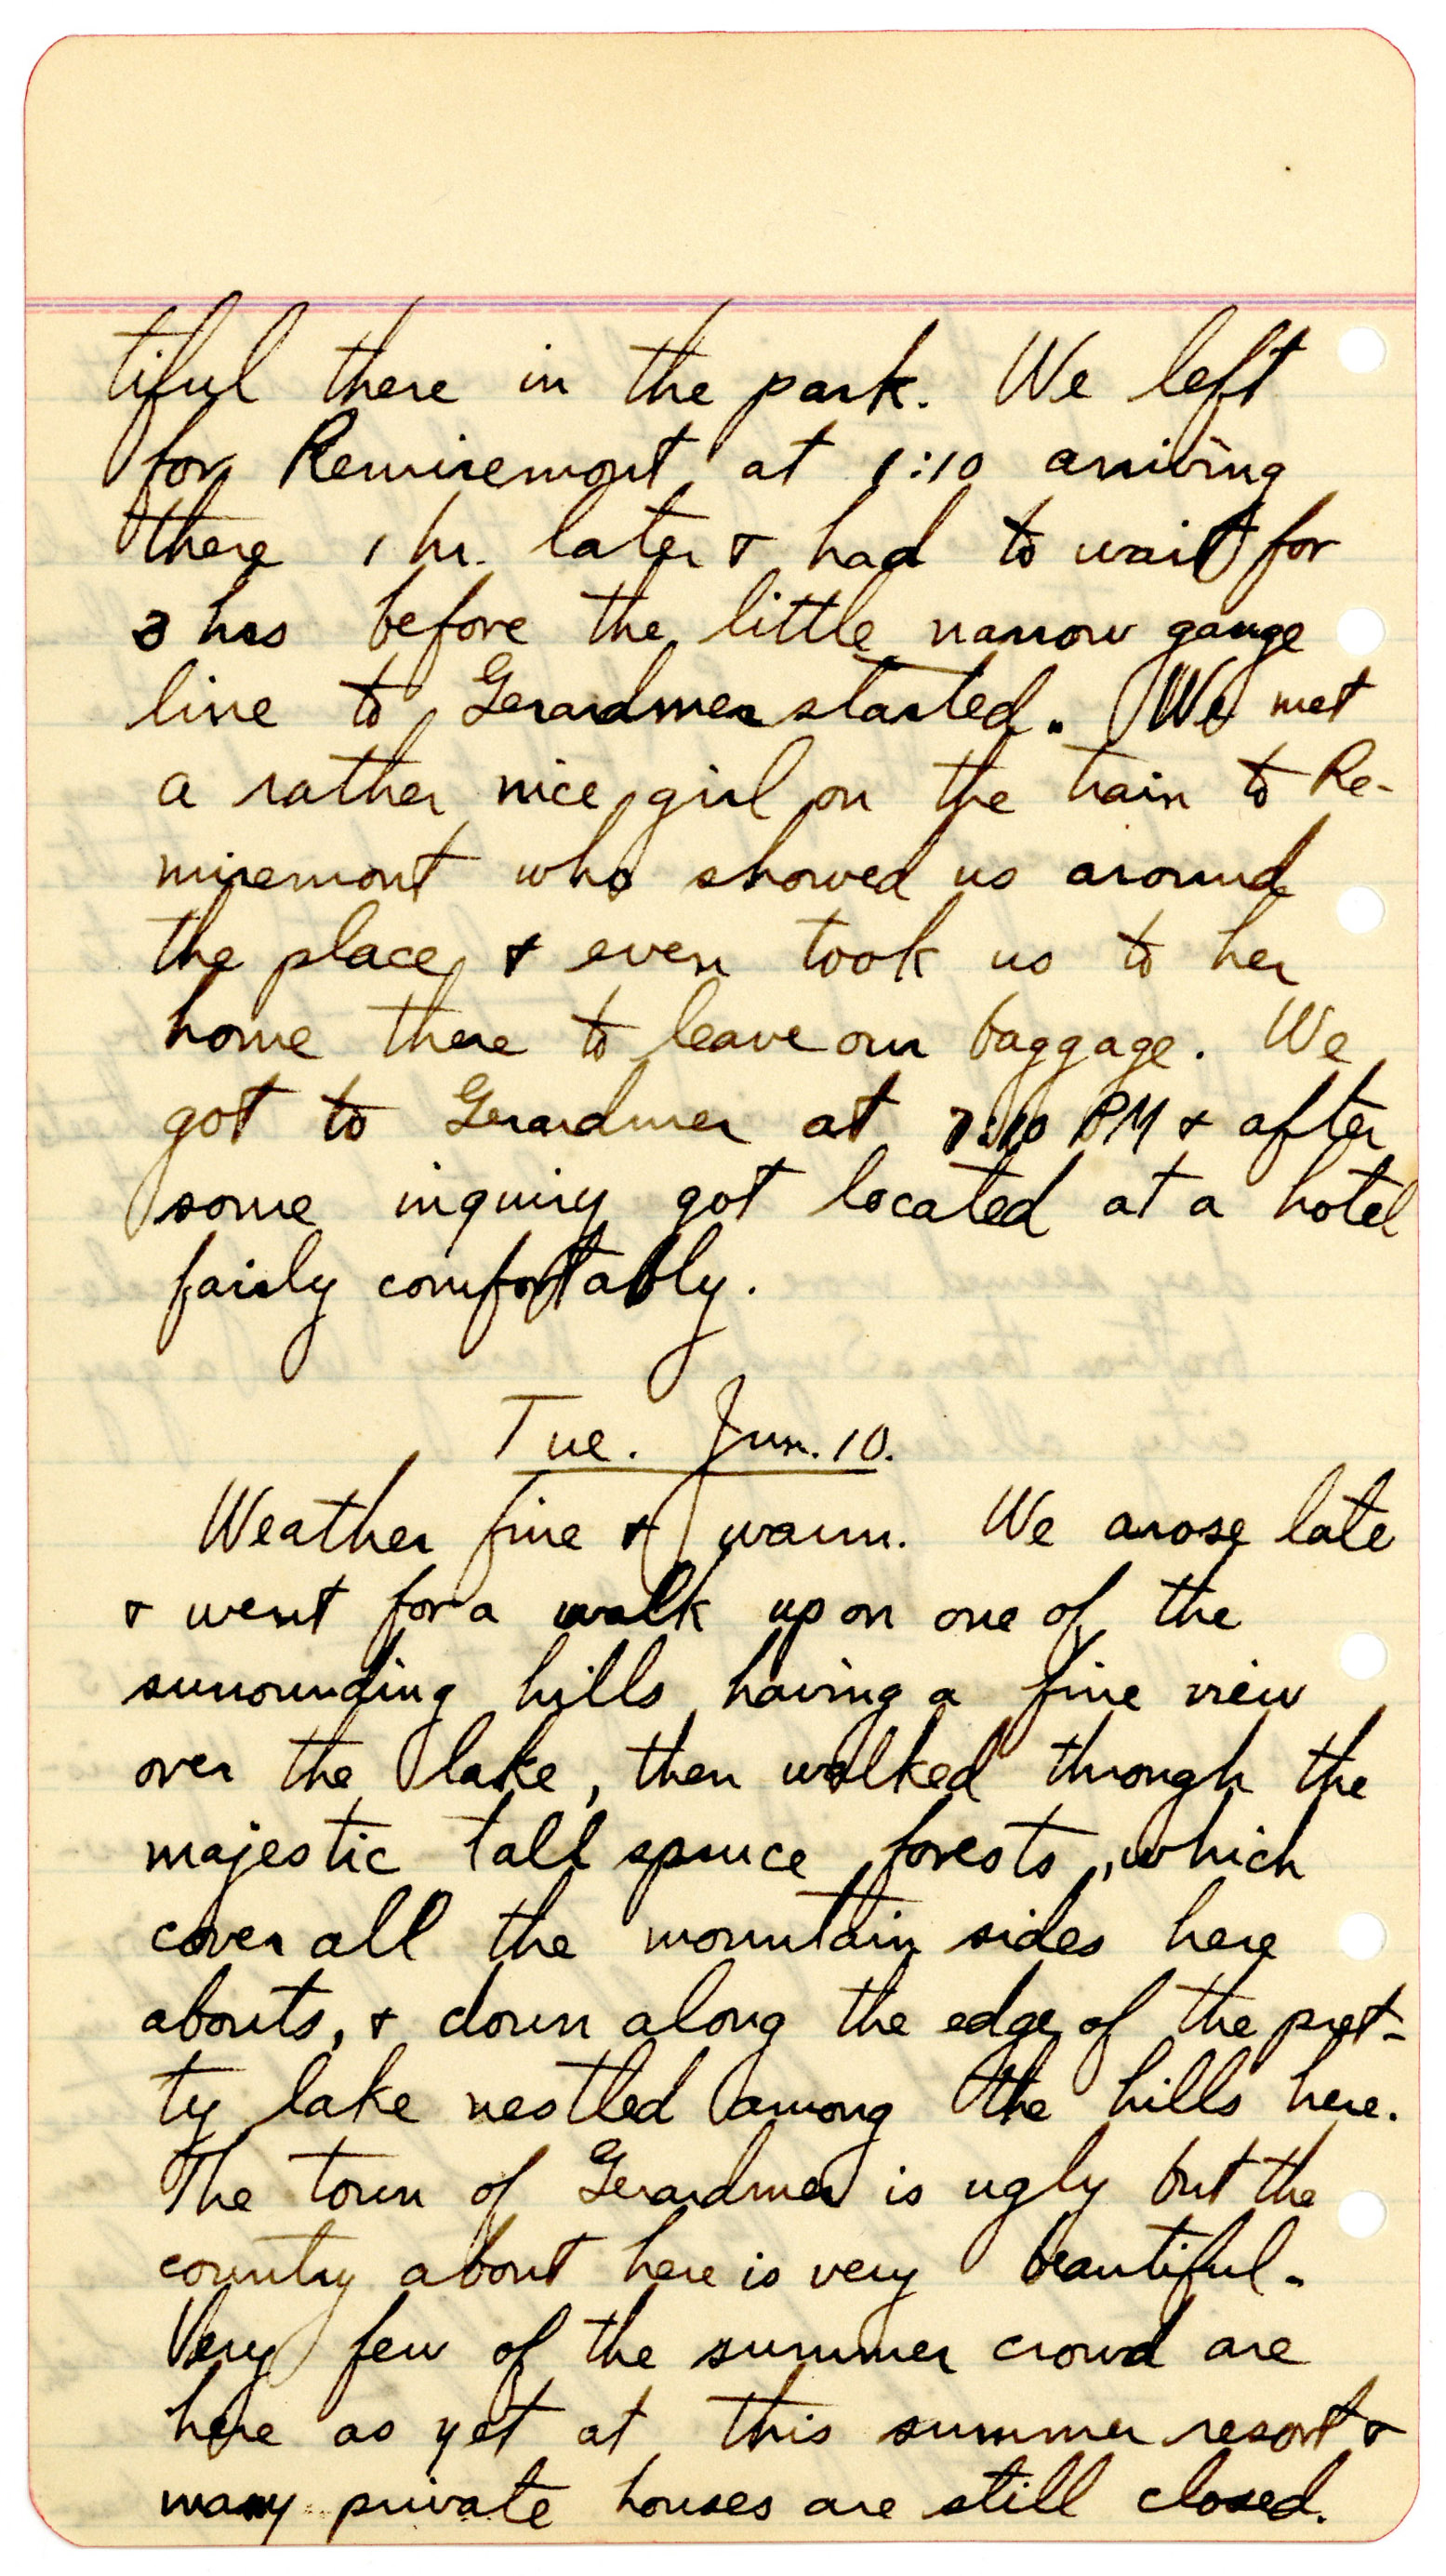 tiful there in the park. We left
for Remiremont at 1:10 arriving
there 1 hr. later & had to wait for
3 hrs before the little narrow gauge
line to Gerardmer started. We met
a rather nice girl on the train to Re-
miremont who showed us around
the place & even took us to her
home there to leave our baggage. We
got to Gerardmer at 7:10 PM & after
some inquiry got located at a hotel
fairly comfortably.
Tue. Jun. 10.
Weather fine & warm. We arose late
& went for a walk up on one of the
surrounding hills having a fine view
over the lake, then walked through the
majestic tall spruce forests, which
cover all the mountain sides here
abouts, & down along the edge of the pret-
ty lake nestled among the hills here.
The town of Gerardmer is ugly but the
country about here is very beautiful.
Very few of the summer crowd are
here as yet at this summer resort &
many private houses are still closed.